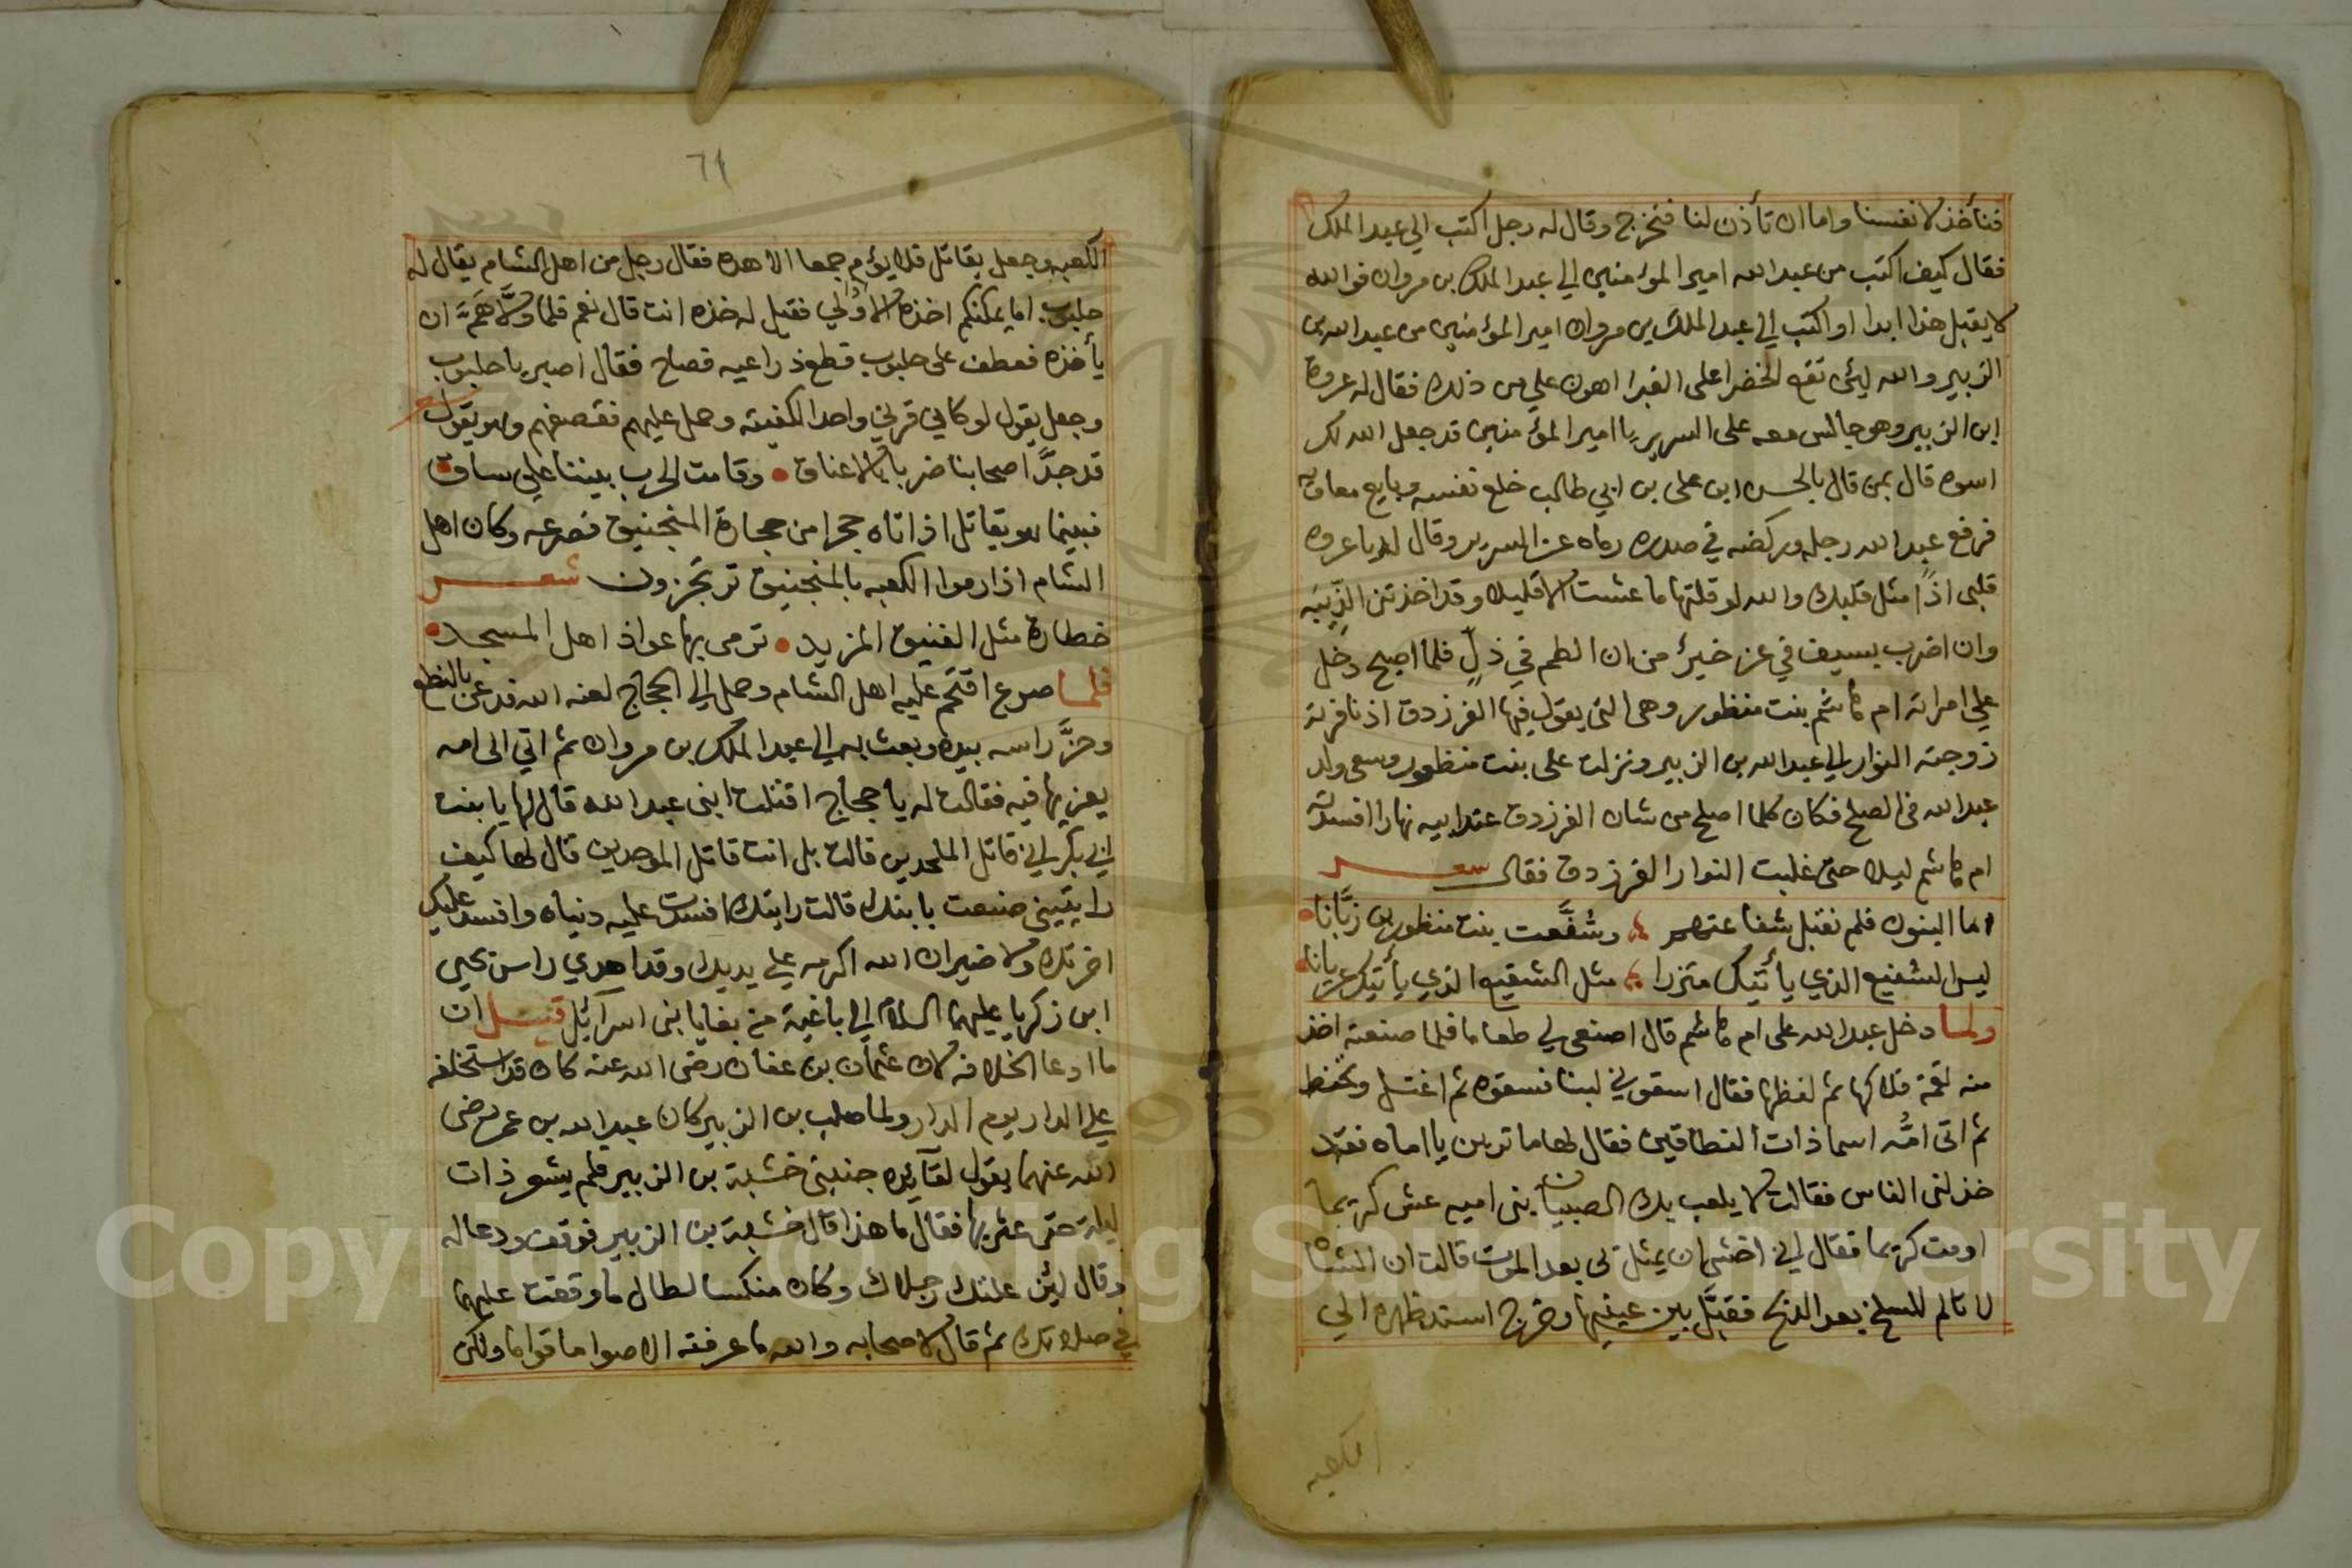 فنأخذ لانفسنا واما ان تأذن لنا فنخرج وقال له رجل اكتب الي عبد الملك
فقال كيف اكتب من عبد الله امير المؤمنين الي عبد الملك بن مروان فوالله
لا يقبل هذا ابدا او اكتب الي عبد الملك بن مروان امير المؤمنين من عبد الله بن
الزبير والله لئن تقع الخضرا على الغبرا اهون علي من ذلك فقال له عروة
ابن الزبير وهو جالس معه على السرير يا امير المؤمنين قد جعل الله لك
اسوه قال بمن قال بالحسن ابن على بن ابي طالب خلع نفسه وبايع معاويه
فرفع عبد الله رجله وركضه في صدره رماه عن السرير وقال له يا عروه
قلبى اذًا مثل قلبك والله لو قلتها ما عشت الا قليلا وقد اخذتنى الدنيه
وان اضرب بسيف في عز خير من ان الطم في ذلٍ فلما اصبح دخل
علي امراته ام هاشم بنت منظور وهى التى يقول فيها الفرزدق اذ نافرته
زوجته النوار الي عبد الله بن الزبير ونزلت على بنت منظور وسعى ولد
عبد الله فى الصلح فكان كلما اصلح من شان الفرزدق عند ابيه نهارا افسدته
ام هاشم ليلا حتى غلبت النوار الفرزدق فقال شعر
اما البنون فلم تقبل شفاعتهم وشفَّعت بنت منظور بن زبَّانا
ليس الشفيع الذي يأتيك متزرا مثل الشفيع الذي يأتيك عريانا
ولما دخل عبد الله على ام هاشم قال اصنعى لي طعاما فلما صنعته اخذ
منه لقمة فلاكها ثم لفظها فقال اسقوني لبنا فسقوه ثم اغتسل وتحنط
ثم اتى امُّه اسما ذات النطاقين فقال لها ما ترين يا اماه فقد
خذلنى الناس فقالت لا يلعب بك الصبيان بنى اميه عش كريما
او مت كريما فقال اني اخشى ان يمثل بى بعد الموت قالت ان الشاه
لا تالم للسلخ بعد الذبح فقبَّل بين عينيها وخرج اسند ظهره الي
الكعبه
٦١
الكعبه وجعل يقاتل فلا يؤم جمعا الا هده فقال رجل من اهل الشام يقال له
جلبوب اما يمكنكم اخذه الا ولي فقيل له خذه انت قال نعم فلما ولَّا همَّ ان
يأخذه فعطف على جلبوب قطع ذراعيه فصاح فقال اصبر يا جلبوب
وجعل يقول لو كان قرني واحدا لكفيته وحمل عليهم فقصفهم وهو يقول شعر
قد جدَّ اصحابنا ضربا بالاعناق وقامت الحرب بيننا علي ساق
فبينما هو يقاتل اذا تاه حجرا من حجارة المنجنيق فصرعه وكان اهل
الشام اذا رموا الكعبه بالمنجنيق ترتجزون شعر
خطارة مثل الفنيق المزيد ترمى بها عواذ اهل المسجد
فلما صرع اقتحم عليه اهل الشام وحمل الي الحجاج لعنه الله فدعى بالنطع
وحزَّ راسه بيده وبعث به الي عبد الملك بن مروان ثم اتي الى امه
يعزيها فيه فقالت له يا حجاج اقتلت ابنى عبد الله قال لها يا بنت
ابي بكر اني قاتل الملحدين قالت بل انت قاتل الموحدين قال لها كيف
رايتينى صنعت بابنك قالت رايتك افسدت عليه دنياه وافسد عليك
اخرتك ولا ضير ان الله اكرمه علي يديك وقد اهدي راس يحيي
ابن زكريا عليهما السلام الي باغية من بغايا بنى اسرآئيل قيل ان
ما ادعا الخلافه لان عثمان بن عفان رضى الله عنه كان قد استخلفه
علي الدار يوم الدار ولما صلب بن الزبير كان عبد الله بن عمر رضى
الله عنهما يقول لقآئده جنبنى خشبة بن الزبير فلم يشعر ذات
ليلة حتى عثر بها فقال ما هذا قال خشبة بن الزبير فوقف ودعا له
وقال لئن علتك رجلاك وكان منكسا لطال ما وقفت عليهما
في صلاتك ثم قال لاصحابه والله ما عرفته الا صواما قواما ولكن
Copyright © King Saud University